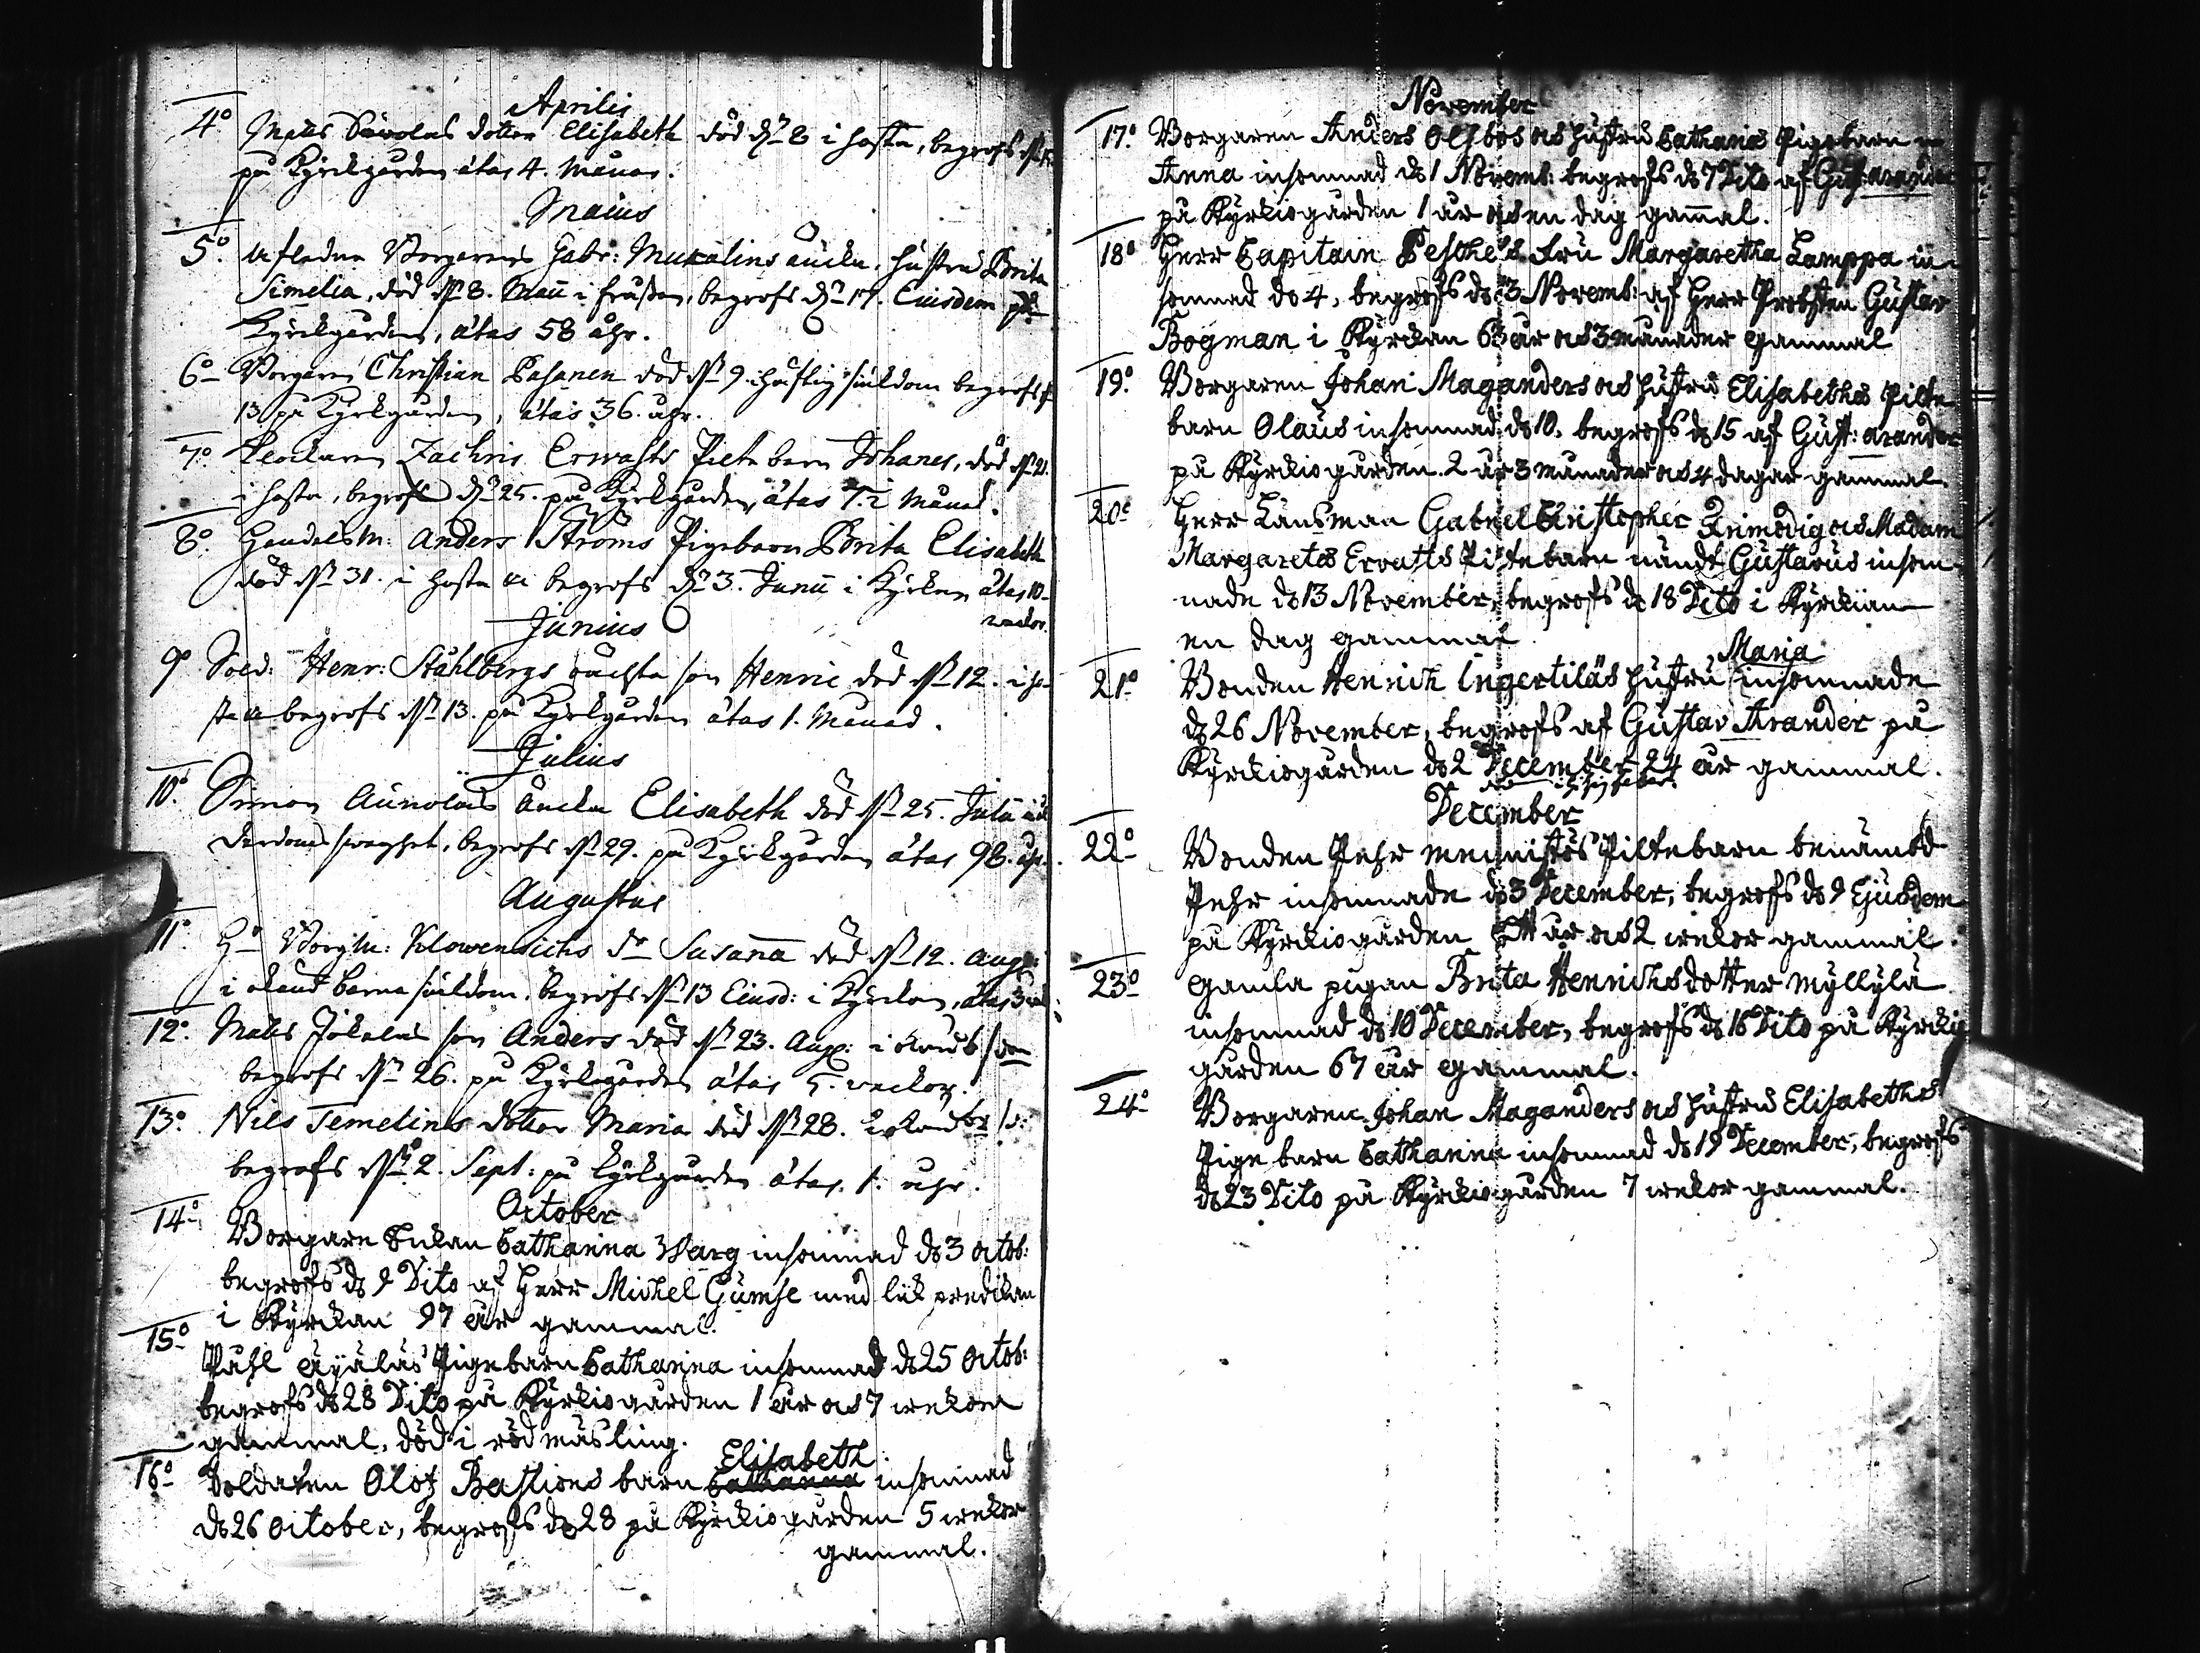 Aprilis
4o Matts Savolas dotter Elisabeth död dn 8 i hosta, begrofs dn
på Kyrkgården ätas 4. Månar.
Maius
5o. Afledne Borgarens Gabr: Mukalins äncka, hustru Brita
Simelia, död dn 8. Maii i frusen, begrofs dn 17. Eiusdem på
Kyrckgården, ätas 58 åhr.
6o Borgaren Christian Pasanen död dn 9. häftig siukdom begrofs
13 på Kyrkgården, ätas 36. åhr.
7o. Klockaren Zachris Erwasts Pilte barn Johanes, död dn 21.
i hosta, begrofs dn 25. på Kyrkgården, ätas 1. Månad.
8o. Handelsm: Anders Ströms Pigebarn Brita Elisabeth
död dn 31. i hosta begrofs dn 3. Junii i Kyrkan ätas 10.
weckor.
Junius
9o Sold: Henr: Ståhlbergs oächta son Henric död dn 12. i ho-
sta begrofs dn 13. på Kyrkgården ätas 1. Månad.
Julius
10o. Simon Aunolas äncka Elisabeth död dn 25. Julii i ål
derdoms swaghet, begrofs dn 29. på Kyrkgården ätas 98. åhr.
Augustus
11o. Hr Borgm: Klowensichs dr Susanna död dn 12. Aug:
i okänd barna siukdom, begrofs dn 13 Eiusd: i Kyrkan, ätas
12o. Matts Jokelas son Anders död dn 23. Aug: i okänd
begrofs dn 26. på Kyrkogården ätas 5. veckor.
13o. Nils Temelins dotter Maria död dn 28.
begrofs dn 2. Sept: på kyrkgården ätas. 1. åhr.
October
14o Borgare Enkan Catharina Warg insomnad d: 3 octob:
begrofs d: 9 Dito af Herr Michel Gumse med lik predikan
i Kyrckan 97 år gammal.
15o Påhl äyäläs Pigebarn Catharina insomnad d: 25 octob:
begrofs d: 28 Dito på Kyrkiogården 1 år och 7 wekor
gammal, död i röd mäsling.
Elisabeth
16o Soldaten Olof Bastions barn Catharina insomnad
d: 26 october, begrofs d: 28 på Kyrckiogården 5 wekor
gammal.
November
17o. Borgaren Anders och hustru Catharias Pigebarn
Anna insomnad d: 1 Novemb: begrofs d: 7 Dito af Gust: arander
på Kyrkiogården 1 år och en dag gammal.
18o Herr Capitain Pesche's Fru Margaretha Lamppa in-
somnad d: 4, begrofs d: 13 Novemb: af Herr Probsten Gustav
Bogman i Kyrckan 63 år och 3 månader gammal
19o. Borgaren Johan Maganders och hustru Elisabeths Pilte
barn Olaus insomnad d: 10, begrofs d: 15 af Gust: arander
på Kyrckiogården. 2 år 3 månader och 4 dagar gammal.
20o Herr Länsman Gabriel Christopher Frimodig och Madam
Margaretas Ervasts Piltebarn nämdt Gustavus insom-
nade d: 13 November, begrofs d: 18 Dito i Kyrckian
en dag gammal
Maria
21o Bonden Henrich Ingertiläs hustru insomnade
d: 26 November, begrofs af Gustav Arander på
Kyrckiogården d: 2 December 24 år gammal.
December
22o Bonden Pehr mennistös Piltebarn benämd
Pehr insomnade d: 3 December, begrofs d: 9 Ejusdem
på Kyrckiogården Ett år och 2 wekor gammal.
23o gamla pigan Brita Henrichsdotter myllylä
insomnad d: 10 December, begrofs d: 16 Dito på Kyrckio
gården 67 år gammal.
24o Borgaren Johan Maganders och hustru Elisabeths
Pige barn Catharina insomnad d: 19 December, begrofs
d: 23 Dito på Kyrckiogården 7 wekor gammal.